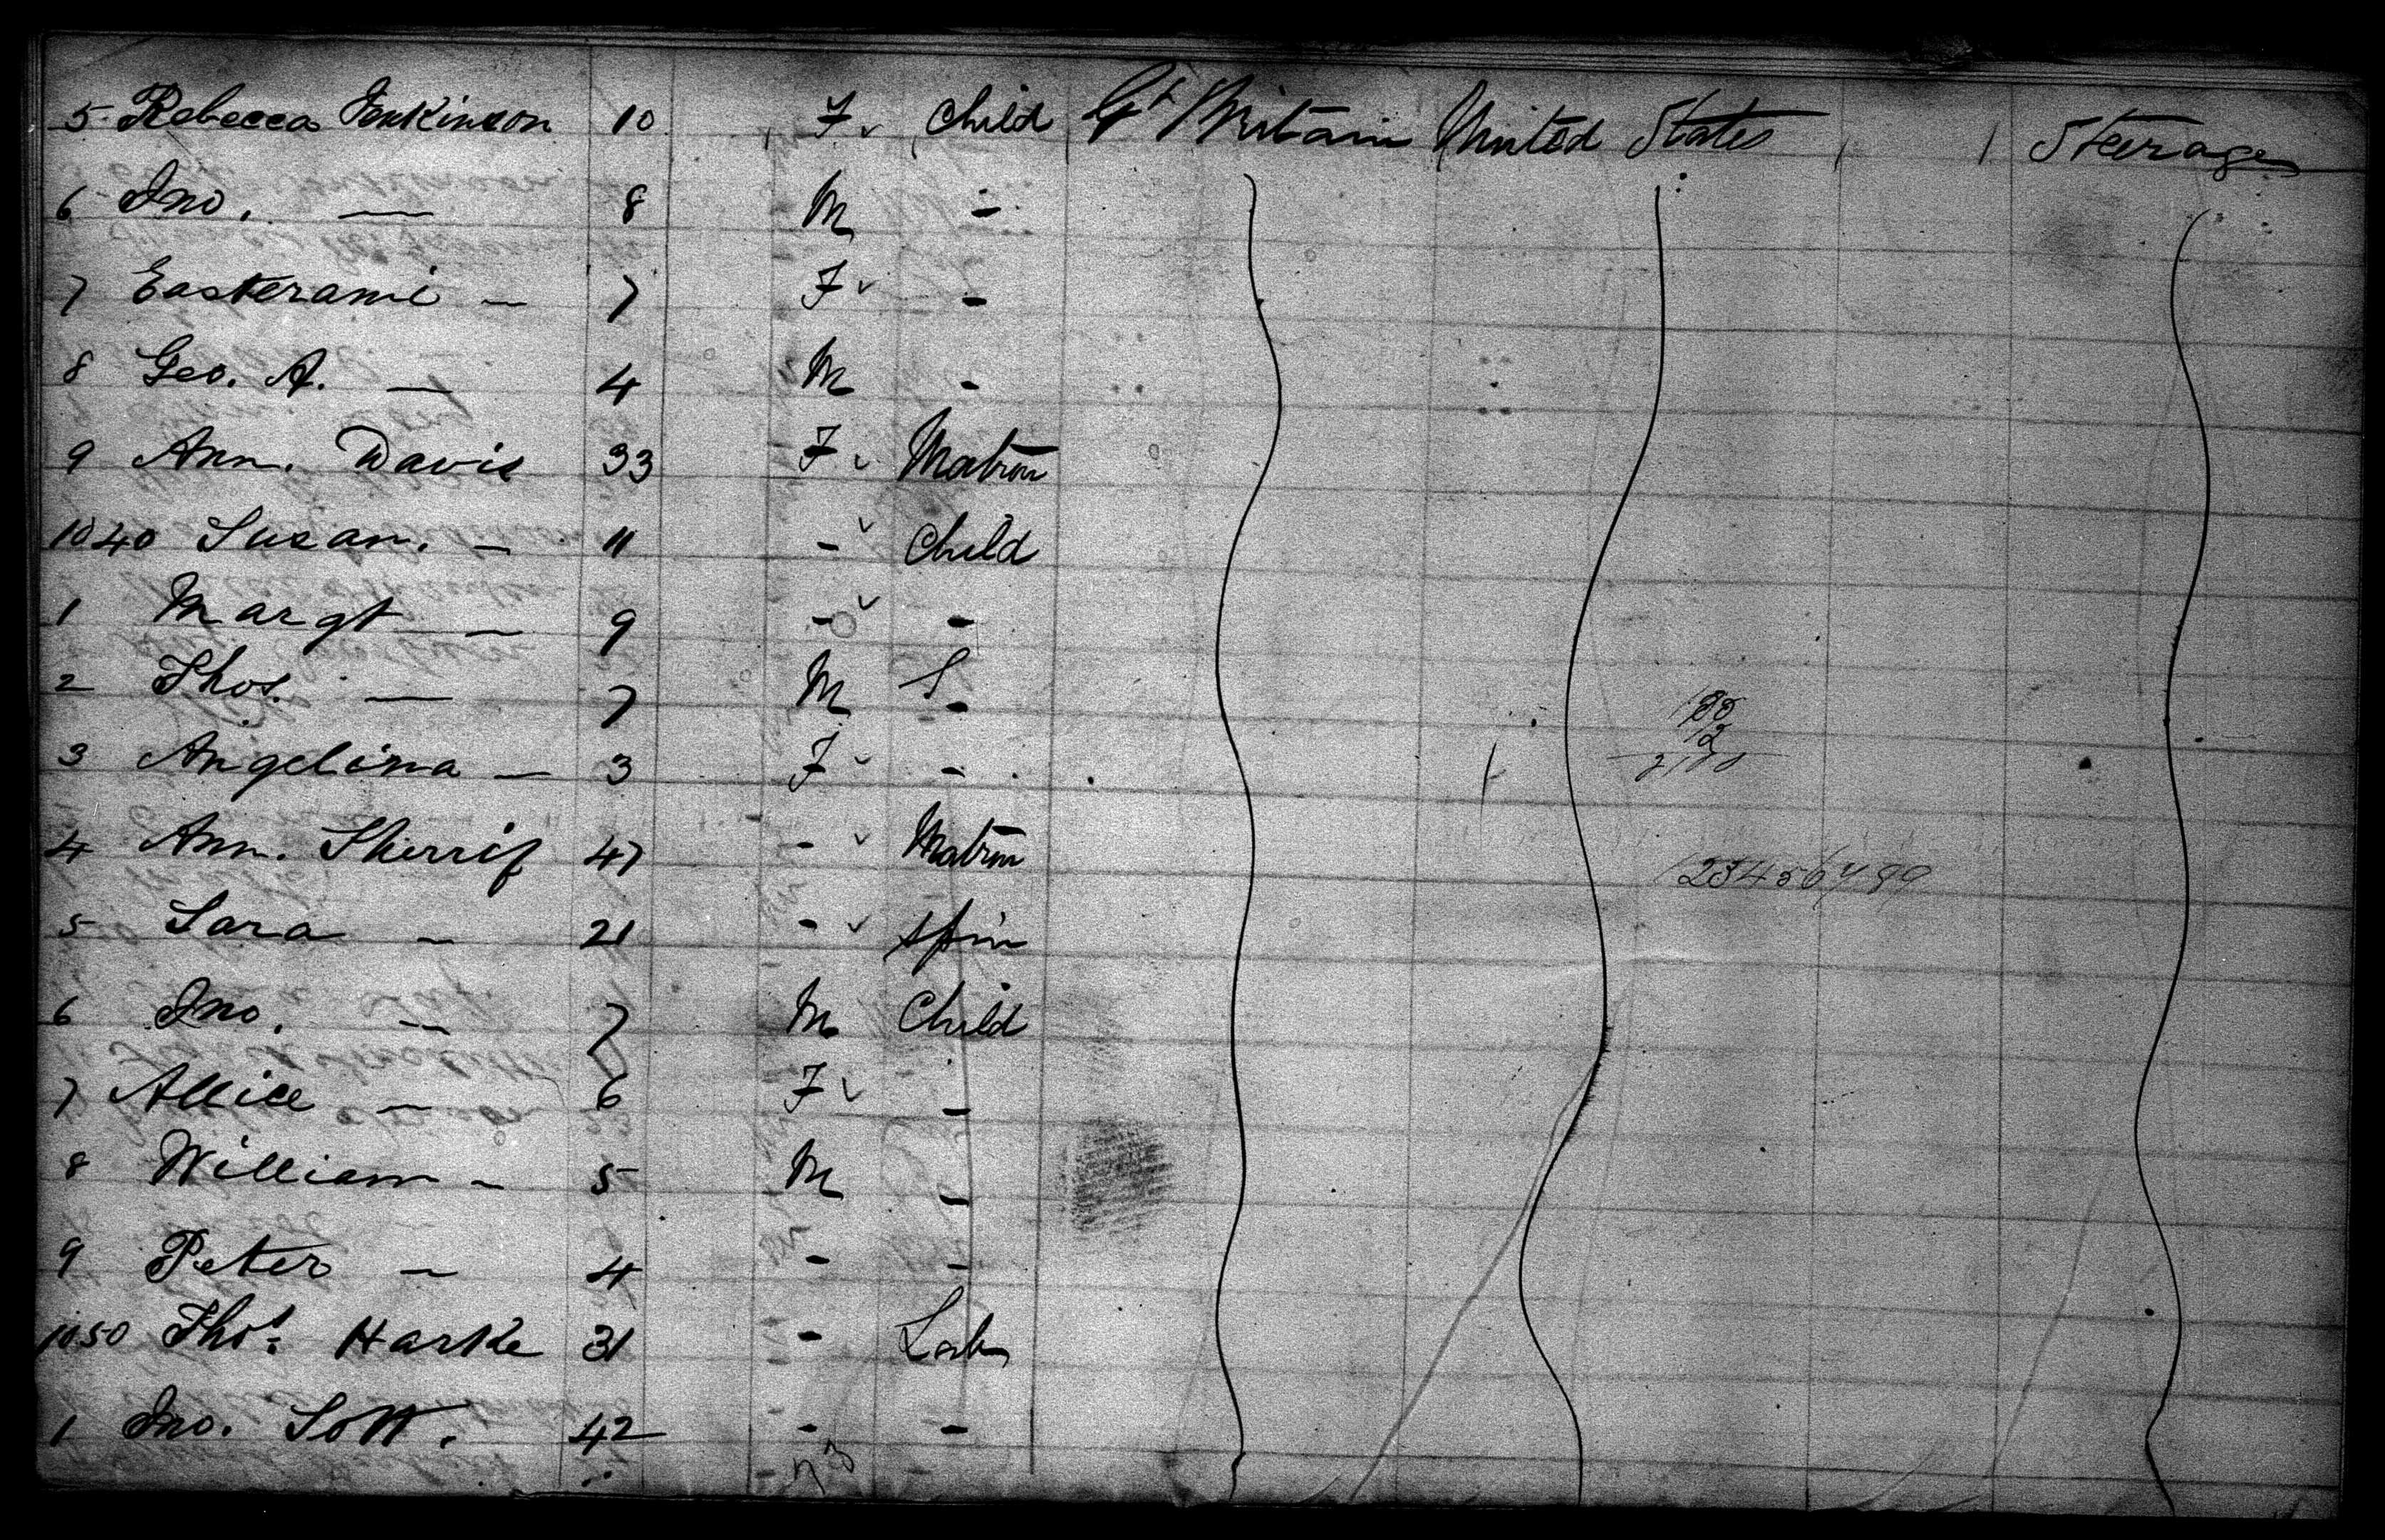 5 Rebecca Jenkinson 10 F ✓ Child Gt Britain United States Steerage
6 Jno. — 8 M -
7 Easterami — 7 F ✓ -
8 Geo. A. — 4 M -
9 Ann. Davis 33 F ✓ Matron
1040 Susan. — 11 - ✓ Child
1 Margt — 9 - ✓ -
2 Thos. — 7 M -
3 Angelina — 3 F ✓ -
4 Ann. Sherrif 47 - ✓ Matron
5 Sara — 21 - ✓ Spin
6 Jno. — 7 M Child
7 Allice — 6 F ✓ -
8 William - 5 M -
9 Peter — 4 - -
1050 Thos. Harke 31 - Lab
1 Jno. Sott. 42 - -
73